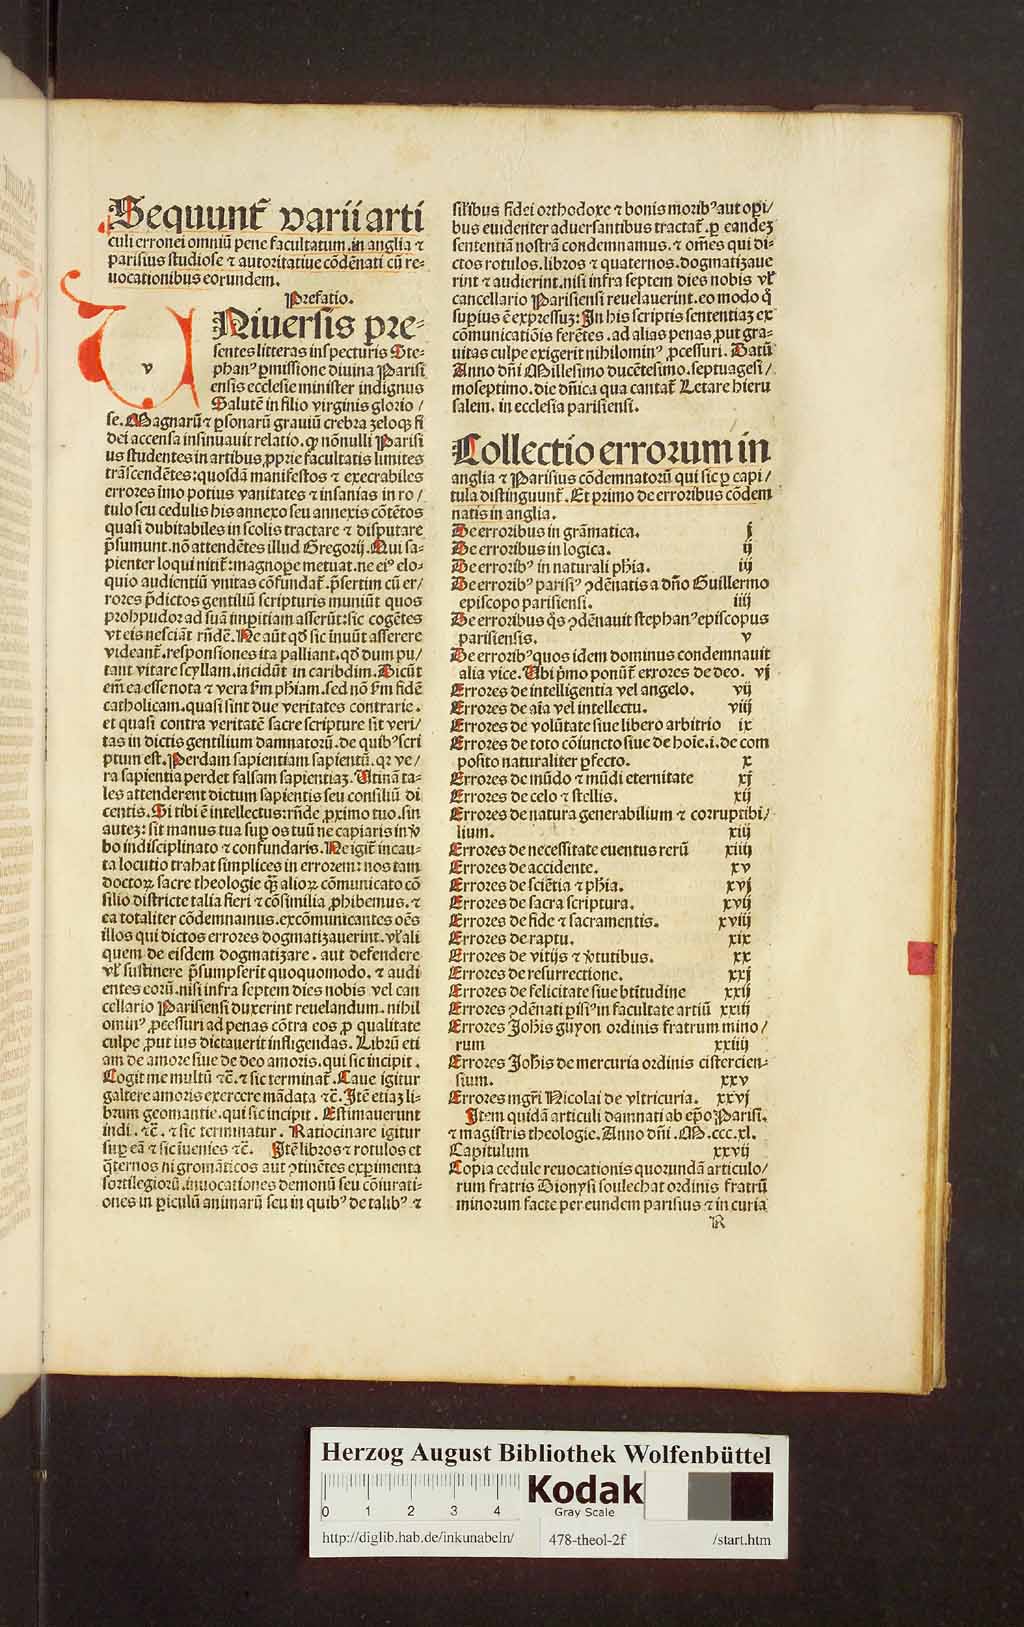 Sequunt̃ varii arti
culi erronei omniũ pene facultatum.in anglia ⁊
parisius studiose ⁊ autoritatiue cõdẽnati cũ re⸗
uocationibus eorundem.
Prefatio.
v
UNiuersis pre⸗
sentes litteras inspecturis Ste⸗
phanꝰ ꝑmissione diuina Parisi
ensis ecclesie minister indignus
Salutẽ in filio virginis glorio/
se. Magnarũ ⁊ ꝑsonarũ grauiũ crebra zeloqꝫ fi
dei accensa insinuauit relatio. ꝙ nõnulli Parisi
us studentes in artibus ꝓprie facultatis limites
trãscendẽtes: quosdã manifestos ⁊ execrabiles
errores imo potius vanitates ⁊ insanias in ro/
tulo seu cedulis his annexo seu annexis cõtẽtos
quasi dubitabiles in scolis tractare ⁊ disputare
p̃sumunt. nõ attendẽtes illud Gregorij. Qui sa⸗
pienter loqui nitit̃: magnope metuat. ne eiꝰ elo⸗
quio audientiũ vnitas cõfundat̃. p̃sertim cũ er/
rores p̃dictos gentiliũ scripturis muniũt quos
proh pudor ad suã imꝑitiam asserũt: sic cogẽtes
vt eis nesciãt rñdẽ. Ne aũt qd̃ sic inuũt asserere
videant̃. responsiones ita palliant. qd̃ dum pu/
tant vitare scyllam. incidũt in caribdim. Dicũt
em̃ ea esse nota ⁊ vera ẜm phiam. sed nõ ẜm fidẽ
catholicam. quasi sint due veritates contrarie.
et quasi contra veritatẽ sacre scripture sit veri/
tas in dictis gentilium damnatorũ. de quibꝰ scri
ptum est. Perdam sapientiam sapientũ. qꝛ ve/
ra sapientia perdet falsam sapientiaꝫ. Utinã ta⸗
les attenderent dictum sapientis seu consiliũ di
centis. Si tibi ẽ intellectus: rñde ꝓximo tuo. sin
auteꝫ: sit manus tua suꝑ os tuũ ne capiaris in ṽ
bo indisciplinato ⁊ confundaris. Ne igit̃ incau⸗
ta locutio trahat simplices in errorem: nos tam
doctoꝝ sacre theologie q̃ꝫ alioꝝ cõmunicato cõ
silio districte talia fieri ⁊ cõsimilia ꝓhibemus. ⁊
ea totaliter cõdemnamus. excõmunicantes oẽs
illos qui dictos errores dogmatizauerint. vl̃ ali
quem de eisdem dogmatizare. aut defendere
vl̃ sustinere p̃sumpserit quoquomodo. ⁊ audi
entes eorũ. nisi infra septem dies nobis vel can
cellario Parisiensi duxerint reuelandum. nihil
ominꝰ ꝓcessuri ad penas cõtra eos ꝓ qualitate
culpe ꝓut ius dictauerit infligendas. Librũ eti
am de amore siue de deo amoris. qui sic incipit.
Cogit me multũ ⁊c̃. ⁊ sic terminat̃. Caue igitur
galtere amoris exercere mãdata ⁊c̃. Itẽ etiaꝫ li⸗
brum geomantie. qui sic incipit. Estimauerunt
indi. ⁊c̃. ⁊ sic terminatur. Ratiocinare igitur
suꝑ eã ⁊ sic iuenies ⁊c̃. Itẽ libros ⁊ rotulos et
q̃ternos nigromãticos aut ↄtinẽtes exꝑimenta
sortilegiorũ. inuocationes demonũ seu cõiurati⸗
ones in ꝑiculũ animarũ seu in quibꝰ de talibꝰ ⁊
silĩbus fidei orthodoxe ⁊ bonis moribꝰ aut oꝑi/
bus euidenter aduersantibus tractat̃. ꝑ eandeꝫ
sententiã nostrã condemnamus. ⁊ om̃es qui di⸗
ctos rotulos. libros ⁊ quaternos. dogmatizaue
rint ⁊ audierint. nisi infra septem dies nobis vl̃
cancellario Parisiensi reuelauerint. eo modo q̃
suꝑius ẽ expressuꝫ: In his scriptis sententiaꝫ ex
cõmunicatiõis ferẽtes. ad alias penas ꝓut gra⸗
uitas culpe exigerit nihilominꝰ ꝓcessuri. Datũ
Anno dñi Millesimo ducẽtesimo. septuagesi/
moseptimo. die dñica qua cantat̃ Letare hieru
salem. in ecclesia parisiensi.
Collectio errorum in
anglia ⁊ Parisius cõdemnatorũ qui sic ꝑ capi/
tula distinguunt̃. Et primo de erroribus cõdem
natis in anglia.
De erroribus in grãmatica. j
De erroribus in logica. ij
De erroribꝰ in naturali phia. iij
De erroribꝰ parisiꝰ ↄdẽnatis a dño Guillermo
episcopo parisiensi. iiij
De erroribus q̃s ↄdẽnauit stephanꝰ episcopus
parisiensis. v
De erroribꝰ quos idem dominus condemnauit
alia vice. Ubi p̃mo ponũt̃ errores de deo. vj
Errores de intelligentia vel angelo. vij
Errores de aĩa vel intellectu. viij
Errores de volũtate siue libero arbitrio ix
Errores de toto cõiuncto siue de hoĩe. i. de com
posito naturaliter ꝑfecto. x
Errores de mũdo ⁊ mũdi eternitate xj
Errores de celo ⁊ stellis. xij
Errores de natura generabilium ⁊ corruptibi/
lium. xiij
Errores de necessitate euentus rerũ xiiij
Errores de accidente. xv
Errores de sciẽtia ⁊ phia. xvj
Errores de sacra scriptura. xvij
Errores de fide ⁊ sacramentis. xviij
Errores de raptu. xix
Errores de vitijs ⁊ ṽtutibus. xx
Errores de resurrectione. xxj
Errores de felicitate siue btĩtudine xxij
Errores ↄdẽnati ꝑisiꝰ in facultate artiũ xxiij
Errores Johis guyon ordinis fratrum mino/
rum xxiiij
Errores Johis de mercuria ordinis cistercien⸗
sium. xxv
Errores mgr̃i Nicolai de vltricuria. xxvj
Item quidã articuli damnati ab ep̃o Parisi.
⁊ magistris theologie. Anno dñi. M.ccc.xl.
Capitulum xxvij
Copia cedule reuocationis quorundã articulo/
rum fratris Dionysi soulechat ordinis fratrũ
minorum facte per eundem parisius ⁊ in curia
R
Herzog August Bibliothek Wolfenbüttel
0 1 2 3 4
Kodak
Gray Scale
http://diglib.hab.de/inkunabeln/ 478-theol-2f /start.htm